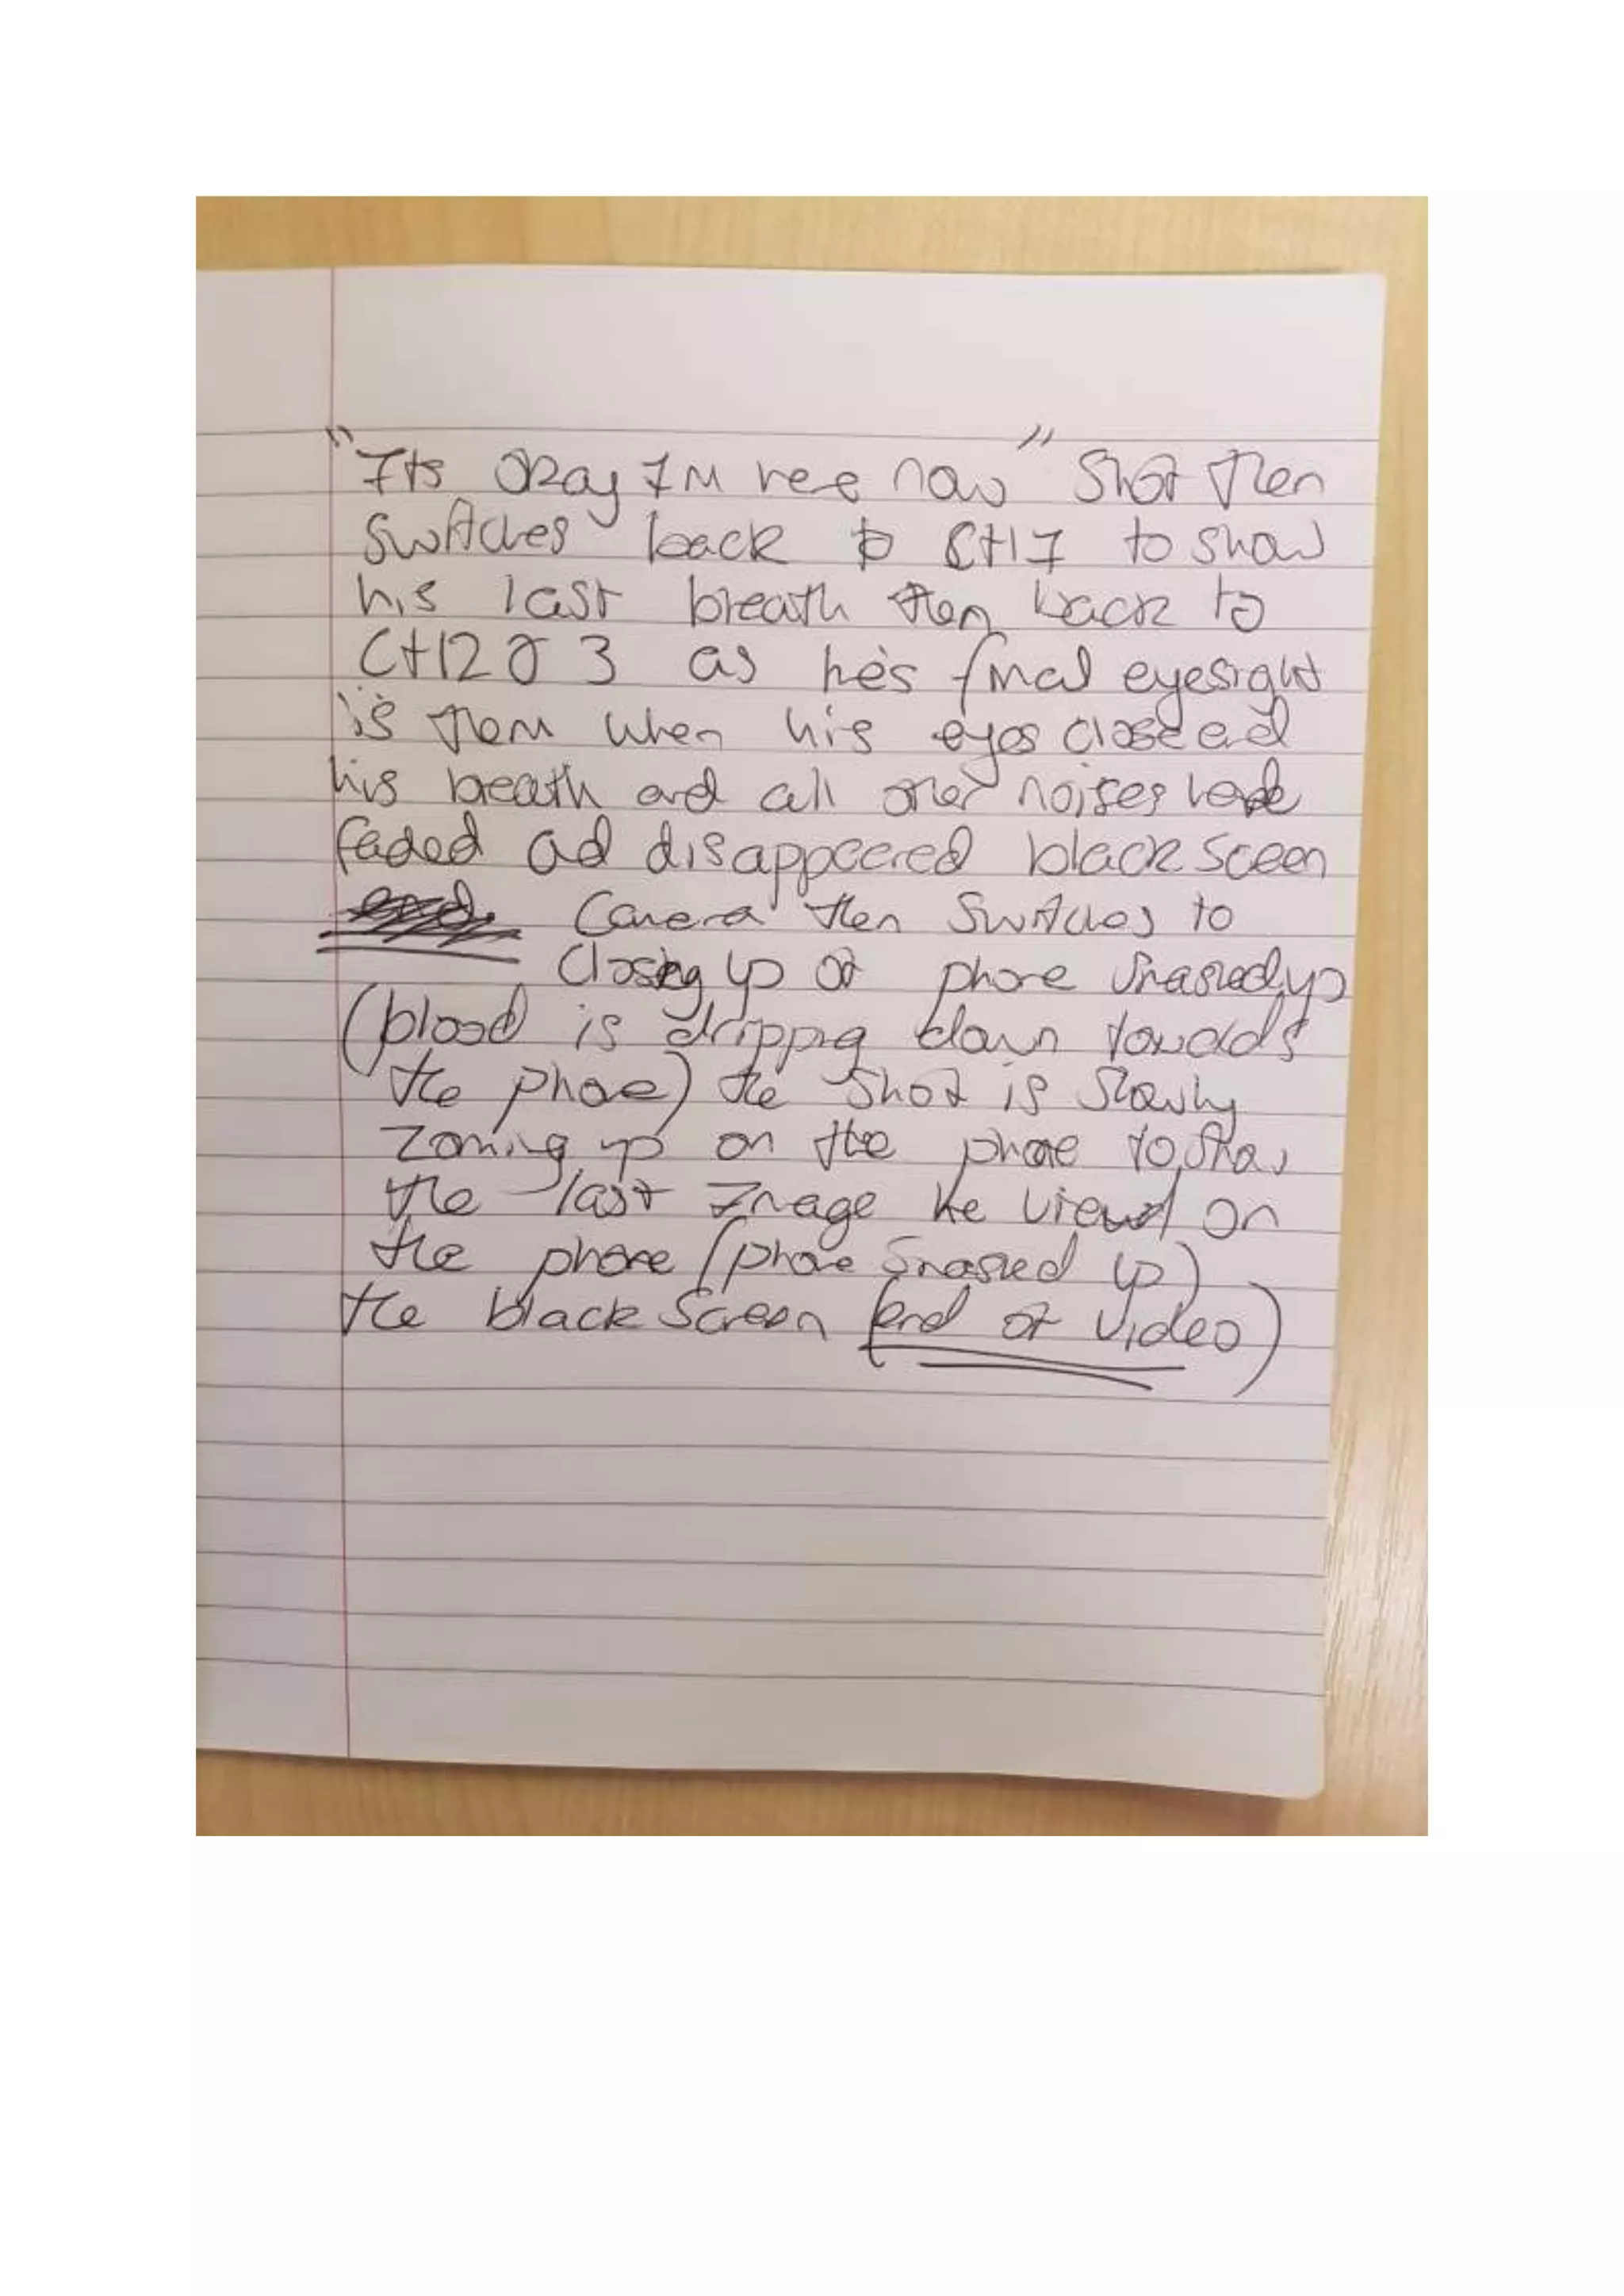 "Its Okay Im here now" Shot then
Switches back to CH1 to show
his last breath then back to
CH2 & 3 as he's final eyesight
is them when his eyes close and
his breath and all other noises have
faded ad disappeared black sceen
Camera then Switches to
Closing up of phone Smashed up
(blood is dripping down towards
the phone) the shot is Slowly
Zoming up on the phone to show
the last Image he viewd on
the phone (phone Smashed up)
the black Screen (end of Video)